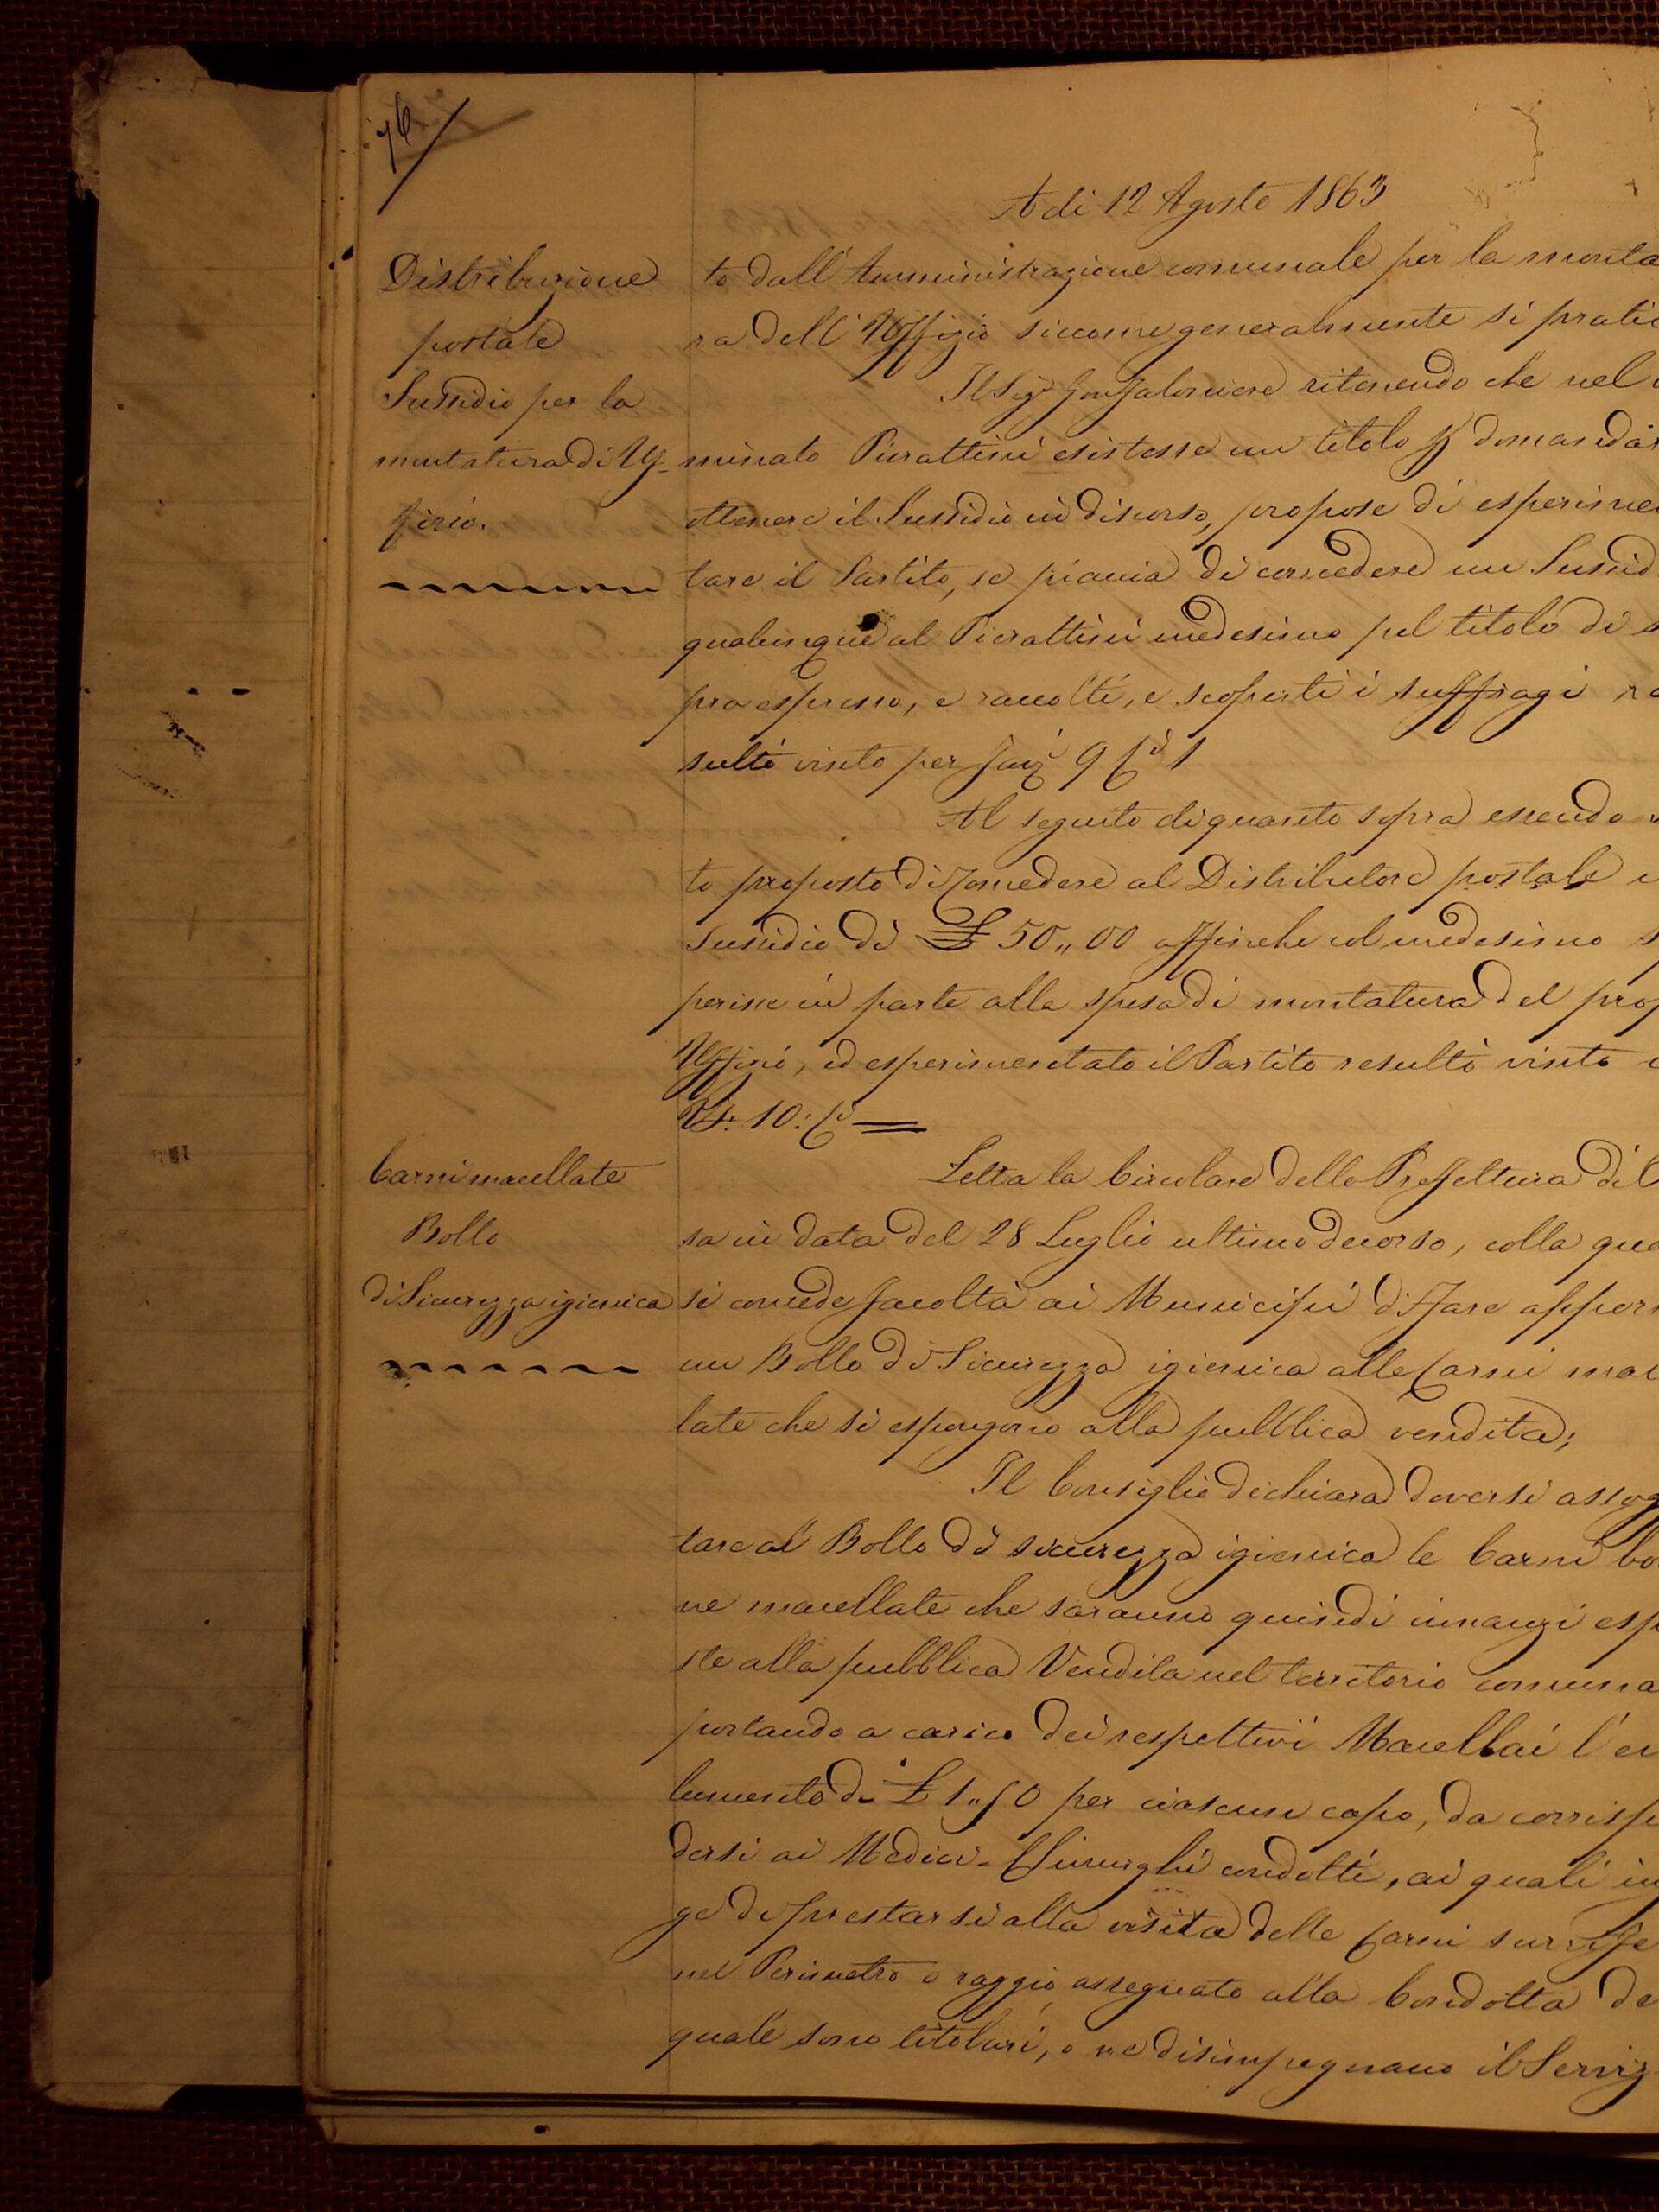 76
A di 12 Agosto 1863
Distribuzione
postale
Sussidio per la
montatura di Uf-
fizio.
to dall'Amministrazione comunale per la monta
ra dell'Uffizio siccome generalmente si pratic
Il Sigr Gonfaloniere ritenendo che nel
minato Pierattini esistesse un titolo p domandar
ottenere il Sussidio in discorso, propose di esperimen
tare il Partito, se piaccia di concedere un Sussid
qualunque al Pierattini medesimo pel titolo di s
pra espresso, e raccolti, e scoperti i suffragi re
sultò vinto per favi 9 Ci 1
Al seguito di quanto sopra essendo
to proposto di Concedere al Distributore postale
Sussidio di £ 50,,00 affinche col medesimo s
perisse in parte alla spesa di montatura del prop
Uffizio, ed esperimentato il Partito resultò vinto
Vf: 10: Ci =
Carni macellate
Bollo
di Sicurezza igienica
Letta la Circolare della Prefettura di
sa in data del 28 Luglio ultimo decorso, colla qua
si concede facoltà ai Municipi di Fare apporr
un Bollo di Sicurezza igienica alle Carni mac
late che si espongono alla pubblica vendita;
Il Consiglio dichiara doversi assog
tare al Bollo di sicurezza igienica le Carni bo
ne macellate che saranno quindi innanzi esp
ste alla pubblica Vendita nel territorio comuna
portando a carico dei respettivi Macellai l'e
lumento di £ 1,,50 per ciascun capo, da corrisp
dersi ai Medici-Chirurghi condotti, ai quali in
ge di prestarsi alla visita delle Carni surrife
nel Perimetro o raggio assegnato alla Condotta de
quale sono titolari, o ne disimpegnano il Serviz